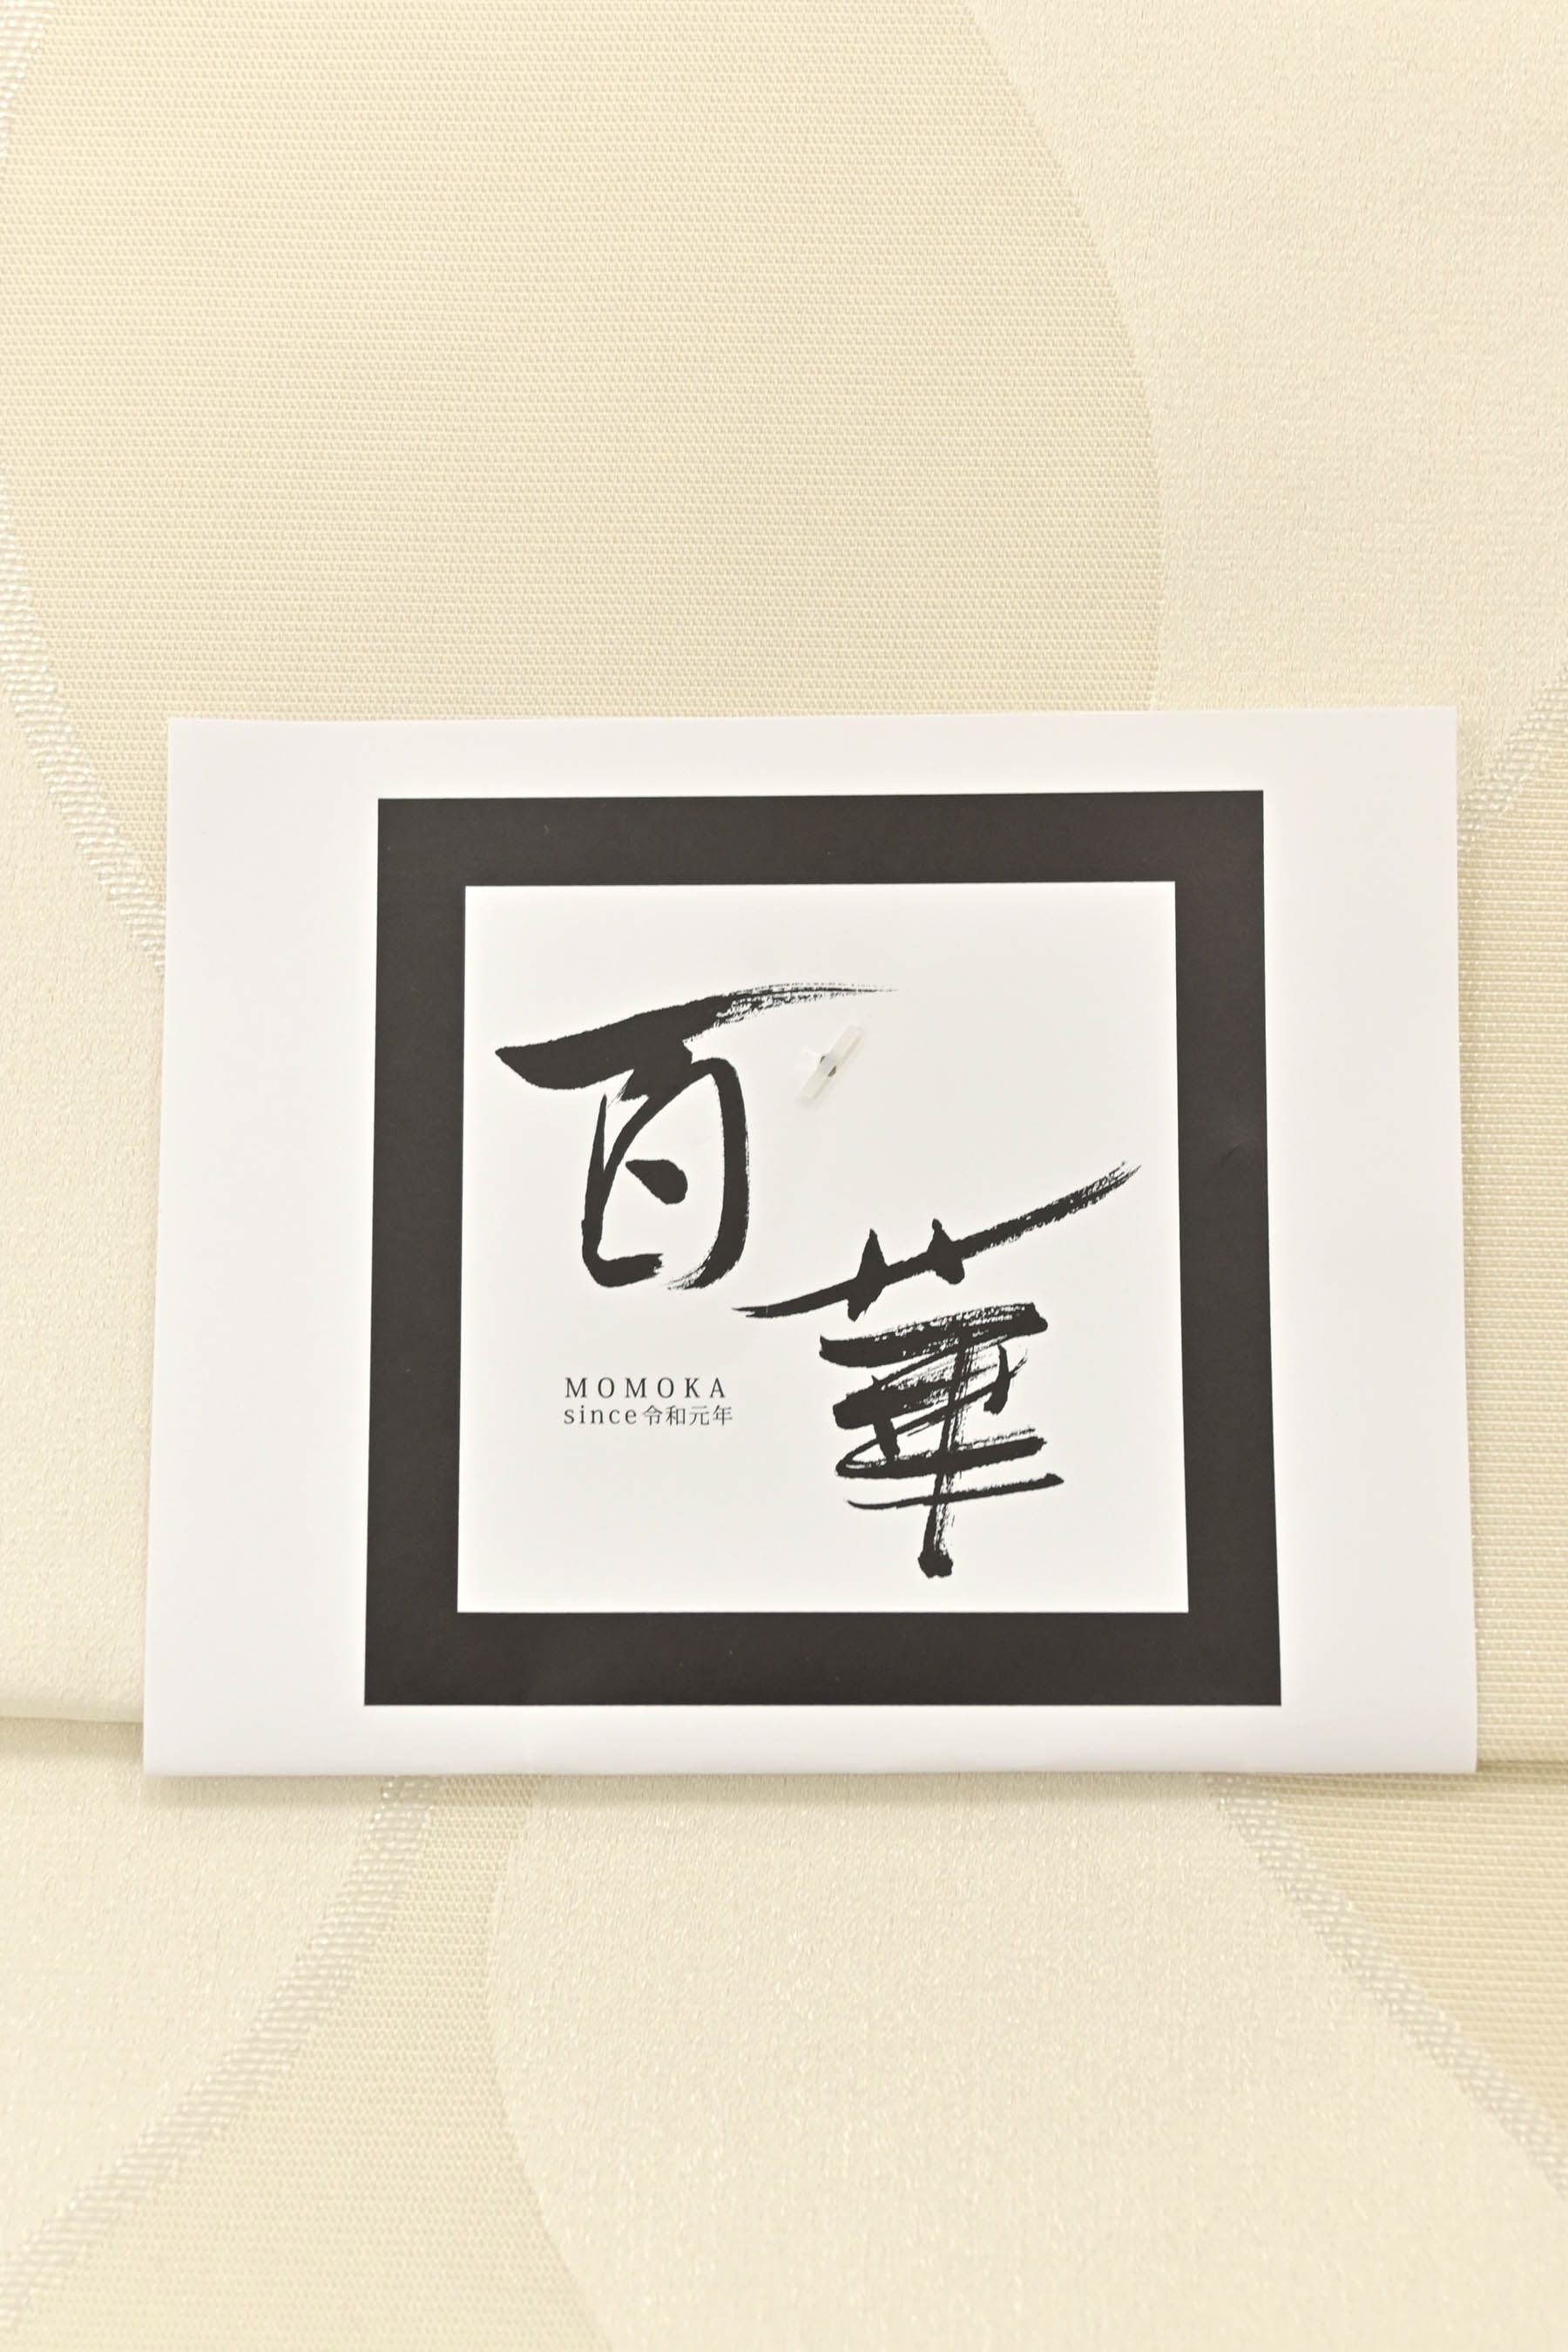 百華
MOMOKA
since令和元年